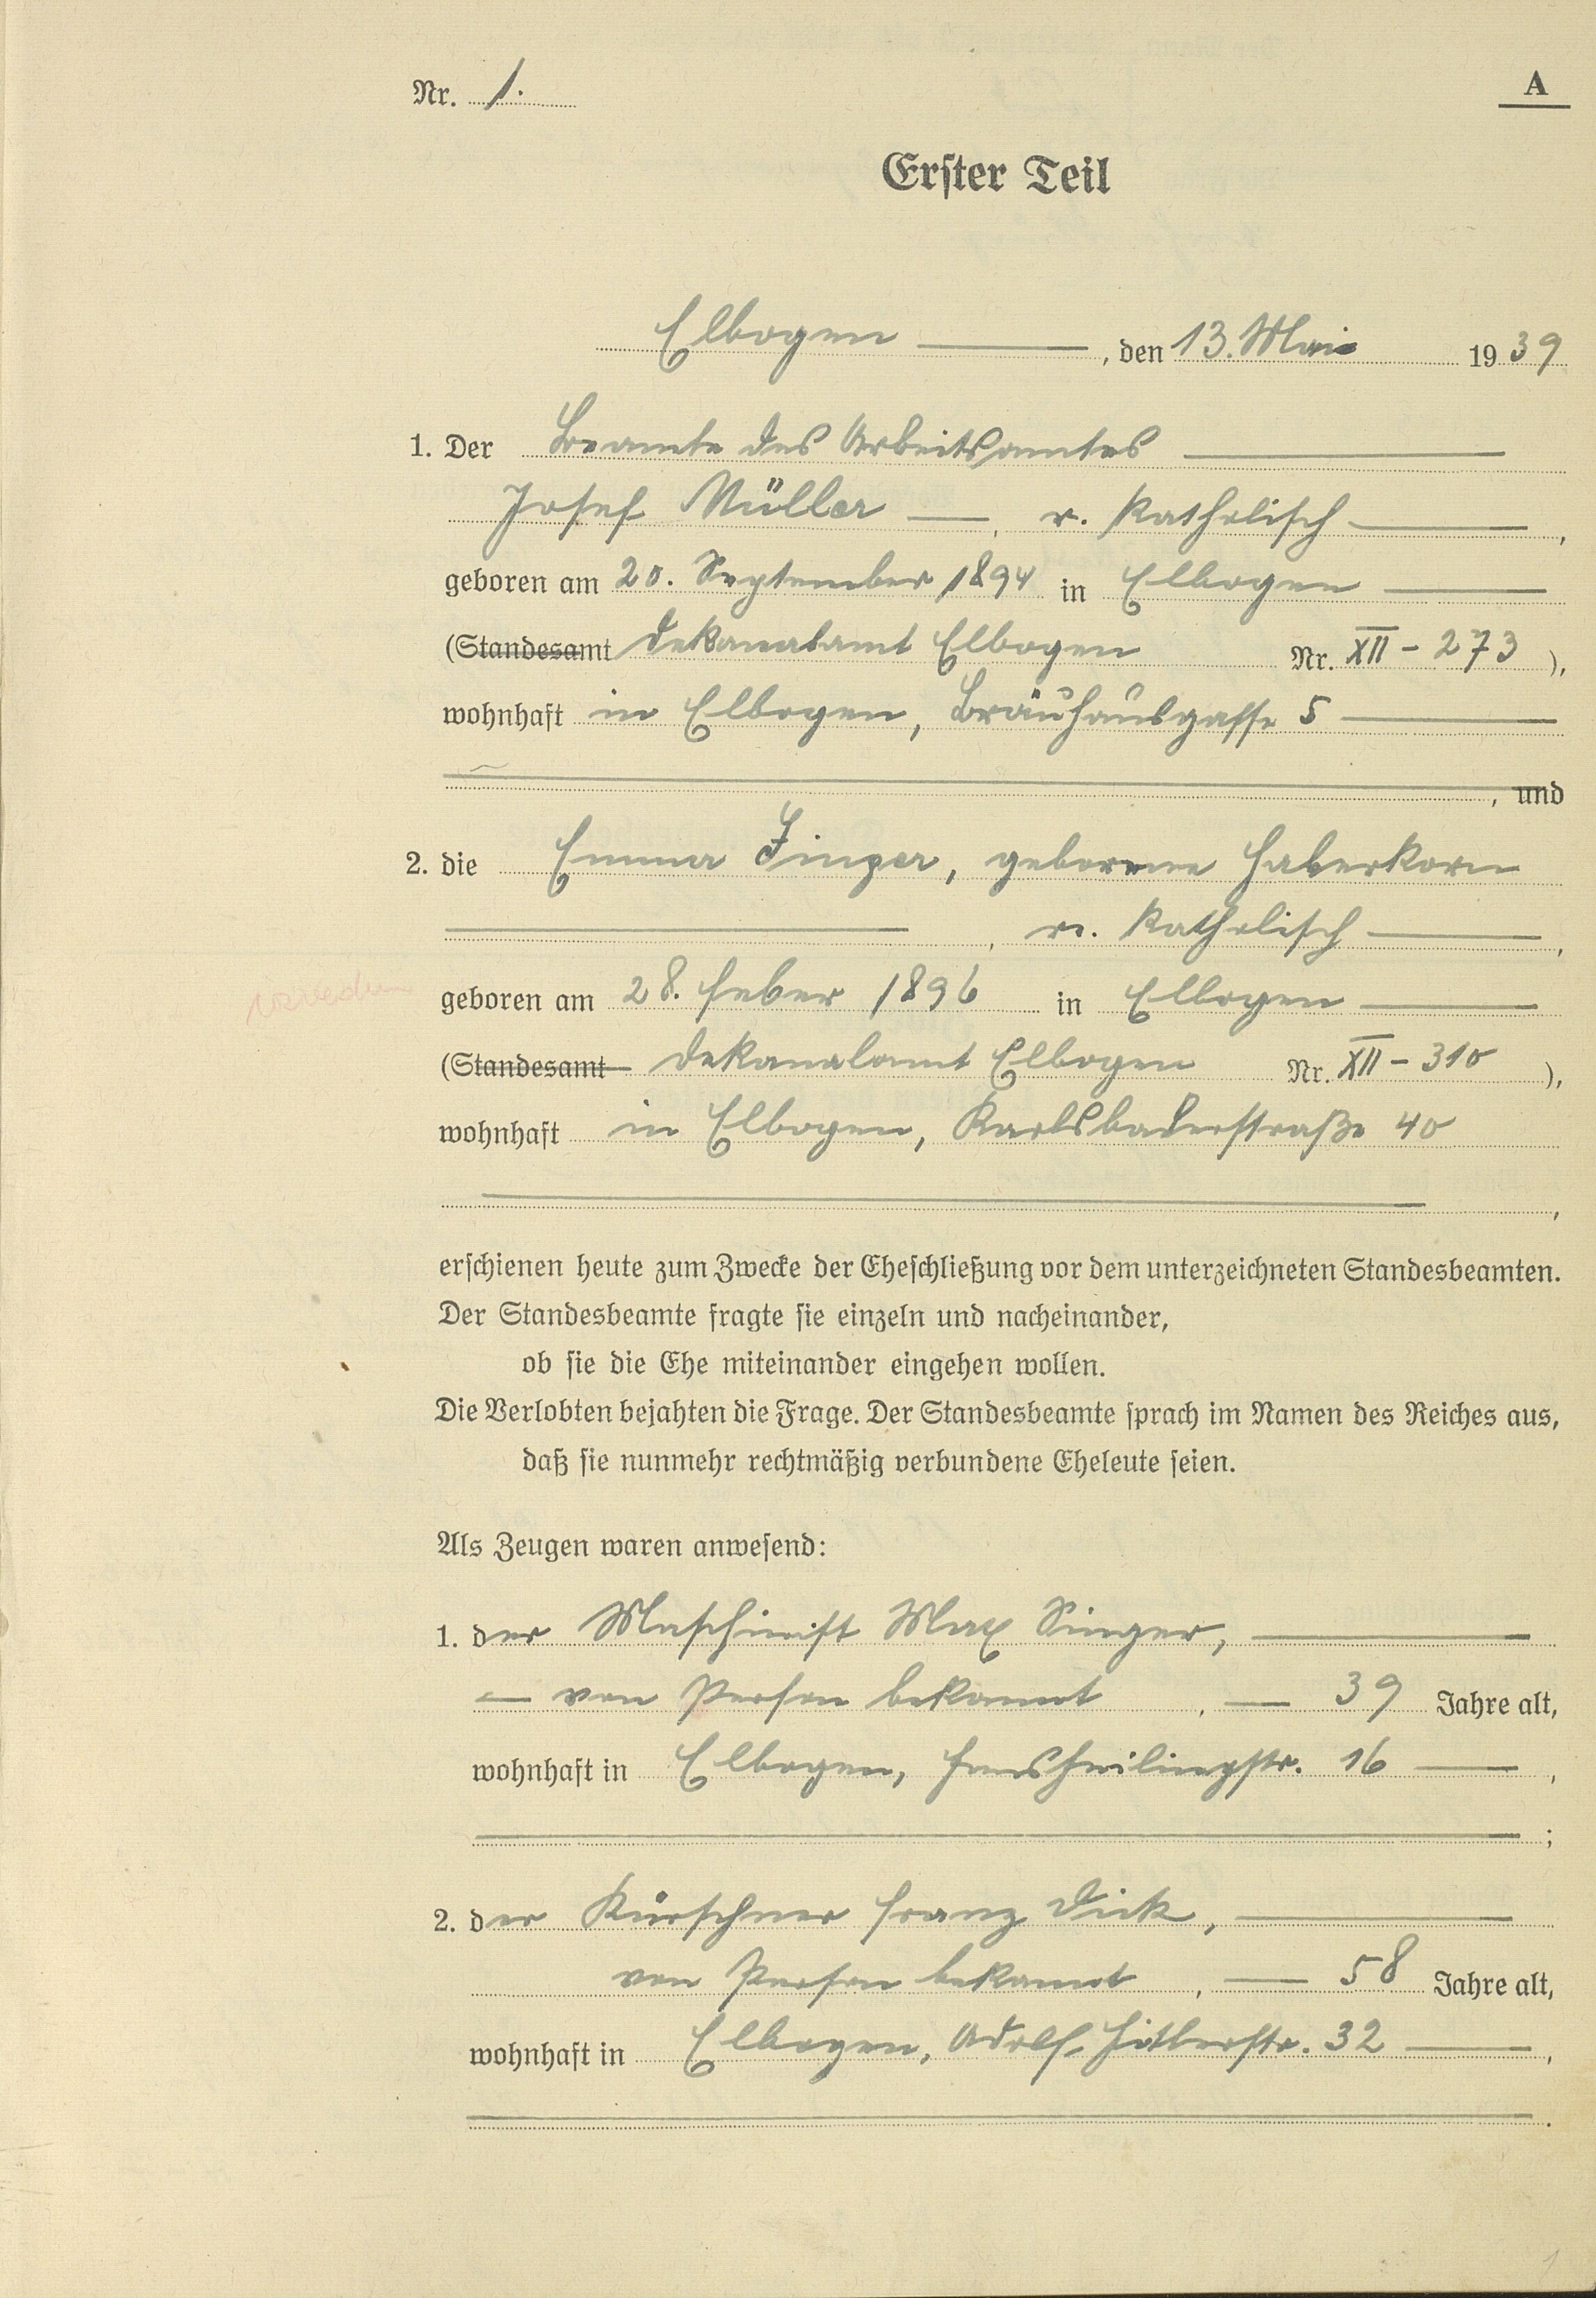 Nr. 1.
A
Erster Teil
Elbogen, den 13. Mai 1939
1. Der Beamte des Arbeitsamtes
Josef Müller, r. katholisch,
geboren am 20. September 1894 in Elbogen
(Standesamt Dekanalamt Elbogen Nr. XII - 273),
wohnhaft in Elbogen, Bräuhausgasse 5
, und
2. die Emma Zinger, geborene Haberkorn
, r. katholisch,
geboren am 28. Feber 1896 in Elbogen
(Standesamt Dekanalamt Elbogen Nr. XII - 310),
wohnhaft in Elbogen, Karlsbaderstraße 40
,
erschienen heute zum Zwecke der Eheschließung vor dem unterzeichneten Standesbeamten.
Der Standesbeamte fragte sie einzeln und nacheinander,
ob sie die Ehe miteinander eingehen wollen.
Die Verlobten bejahten die Frage. Der Standesbeamte sprach im Namen des Reiches aus,
daß sie nunmehr rechtmäßig verbundene Eheleute seien.
Als Zeugen waren anwesend:
1. der Maschinist Max Singer,
von Person bekannt, 39 Jahre alt,
wohnhaft in Elbogen, Hansheilingstr. 16,
;
2. der Kürschner Franz Dick,
von Person bekannt, 58 Jahre alt,
wohnhaft in Elbogen, Adolf Hitlerstr. 32,
.
1